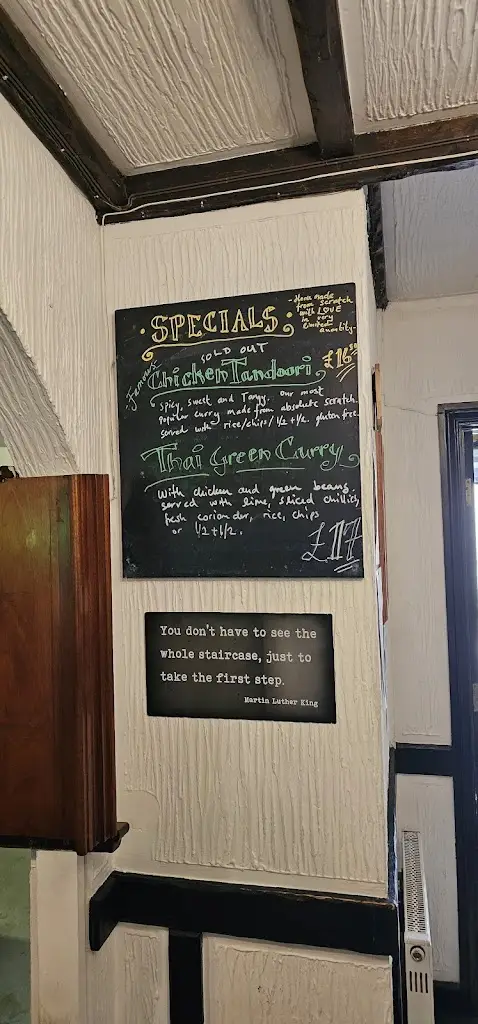 · SPECIALS ·
- Home made
from scratch
with LOVE
in very
limited
quantity -
SOLD OUT
Famous
Chicken Tandoori £16.50
Spicy, sweet and Tangy. Our most
Popular curry made from absolute scratch.
served with rice/chips/ 1/2 + 1/2. gluten free.
Thai Green Curry
With chicken and green beans
served with lime, sliced chillies,
fresh coriander, rice, chips
or 1/2 + 1/2.
£17
You don't have to see the
whole staircase, just to
take the first step.
Martin Luther King